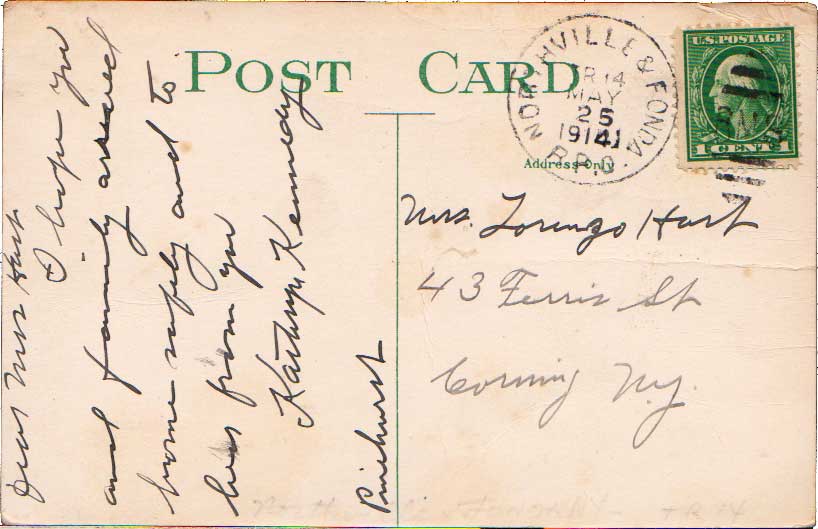 POST CARD
Dear Mrs Hart
I hope you
and family arrived
home safely and to
hear from you
Kathryn Kennedy
Pinehurst
NORTHVILLE & FONDA
TR 14
MAY
25
1914
R.P.O.
U.S. POSTAGE
1 CENT 1
Address Only
Mrs. Lorenzo Hart
43 Ferris St
Corning N.Y.